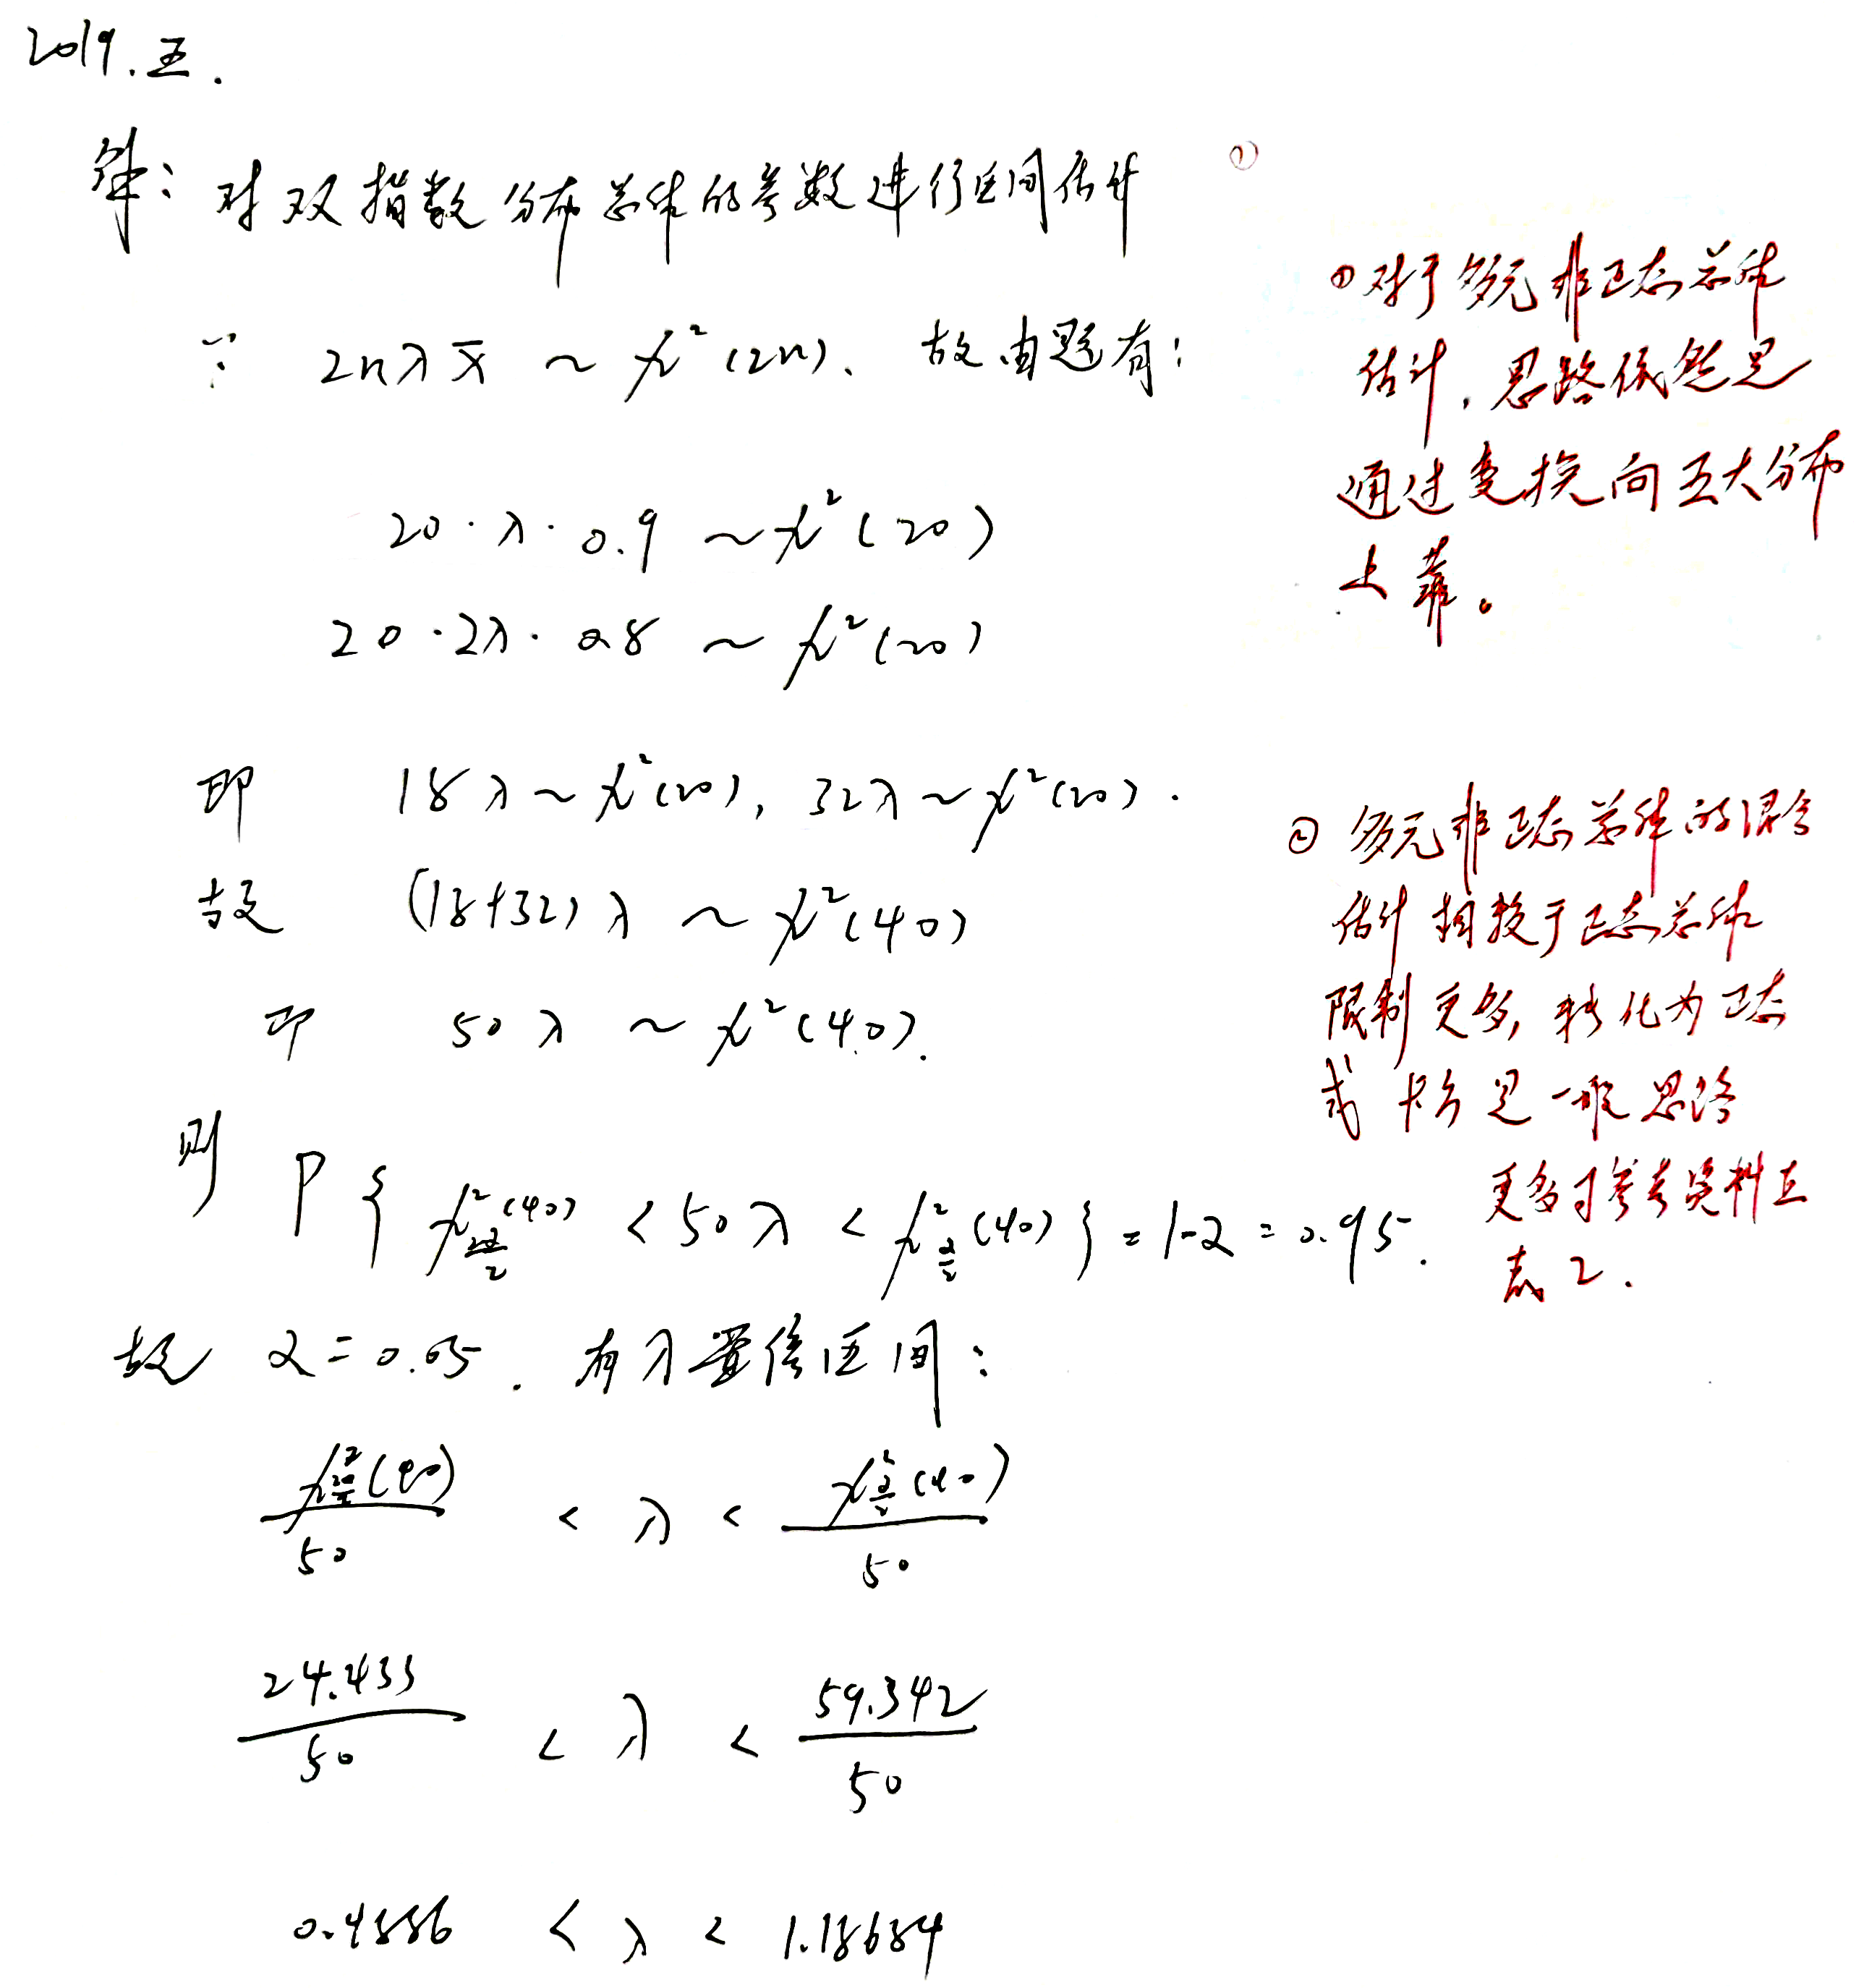 2019.五.
解：对双指数分布总体的参数进行区间估计 ①
∵ 2nλx̄ ~ χ²(2n). 故由题有：
20·λ·0.9 ~ χ²(20)
20·2λ·0.8 ~ χ²(20)
即 18λ ~ χ²(20), 32λ ~ χ²(20).
故 (18+32)λ ~ χ²(40)
即 50λ ~ χ²(40).
则 P{χ²_{1-α/2}(40) < 50λ < χ²_{α/2}(40)} = 1-α = 0.95.
故 α = 0.05. 有λ置信区间：
χ²_{1-α/2}(40)/50 < λ < χ²_{α/2}(40)/50
24.433/50 < λ < 59.342/50
0.48886 < λ < 1.18684
①对于多元非正态总体
估计，思路依然是
通过变换向五大分布
上靠。
② 多元非正态总体的混合
估计相较于正态总体
限制更多，转化为正态
或卡方是一般思路
更多可参考资料五
表2.